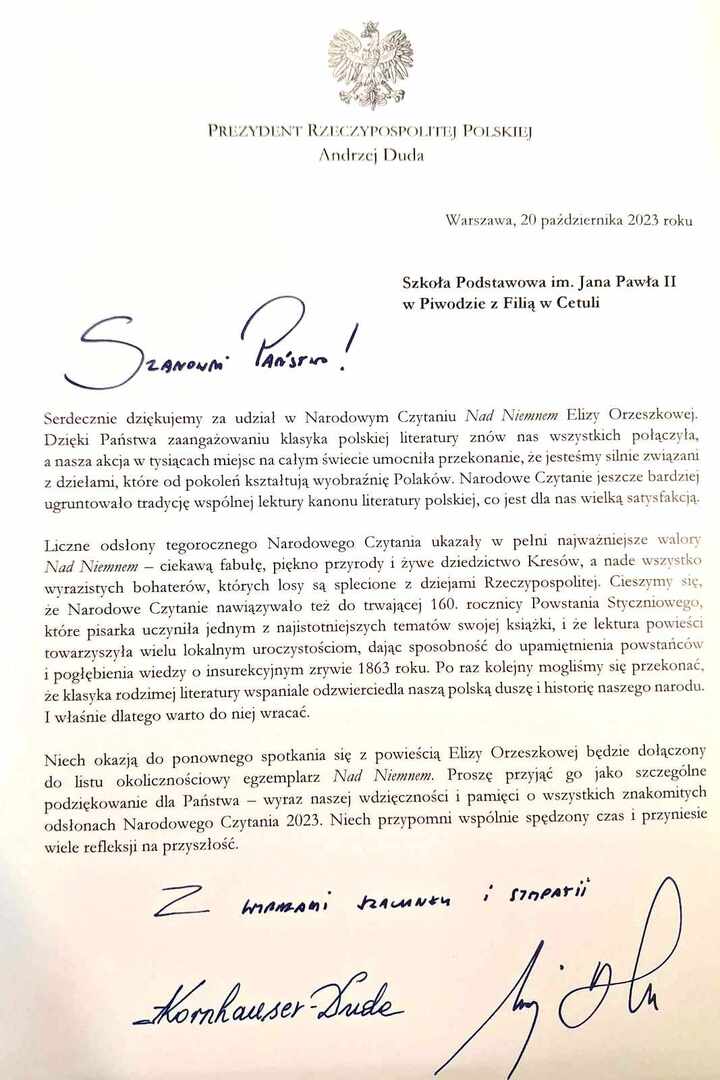 PREZYDENT RZECZYPOSPOLITEJ POLSKIEJ
Andrzej Duda
Warszawa, 20 października 2023 roku
Szkoła Podstawowa im. Jana Pawła II
w Piwodzie z Filią w Cetuli
Szanowni Państwo!
Serdecznie dziękujemy za udział w Narodowym Czytaniu Nad Niemnem Elizy Orzeszkowej.
Dzięki Państwa zaangażowaniu klasyka polskiej literatury znów nas wszystkich połączyła,
a nasza akcja w tysiącach miejsc na całym świecie umocniła przekonanie, że jesteśmy silnie związani
z dziełami, które od pokoleń kształtują wyobraźnię Polaków. Narodowe Czytanie jeszcze bardziej
ugruntowało tradycję wspólnej lektury kanonu literatury polskiej, co jest dla nas wielką satysfakcją.
Liczne odsłony tegorocznego Narodowego Czytania ukazały w pełni najważniejsze walory
Nad Niemnem – ciekawą fabułę, piękno przyrody i żywe dziedzictwo Kresów, a nade wszystko
wyrazistych bohaterów, których losy są splecione z dziejami Rzeczypospolitej. Cieszymy się,
że Narodowe Czytanie nawiązywało też do trwającej 160. rocznicy Powstania Styczniowego,
które pisarka uczyniła jednym z najistotniejszych tematów swojej książki, i że lektura powieści
towarzyszyła wielu lokalnym uroczystościom, dając sposobność do upamiętnienia powstańców
i pogłębienia wiedzy o insurekcyjnym zrywie 1863 roku. Po raz kolejny mogliśmy się przekonać,
że klasyka rodzimej literatury wspaniale odzwierciedla naszą polską duszę i historię naszego narodu.
I właśnie dlatego warto do niej wracać.
Niech okazją do ponownego spotkania się z powieścią Elizy Orzeszkowej będzie dołączony
do listu okolicznościowy egzemplarz Nad Niemnem. Proszę przyjąć go jako szczególne
podziękowanie dla Państwa – wyraz naszej wdzięczności i pamięci o wszystkich znakomitych
odsłonach Narodowego Czytania 2023. Niech przypomni wspólnie spędzony czas i przyniesie
wiele refleksji na przyszłość.
Z wyrazami szacunku i sympatii
Kornhauser-Duda